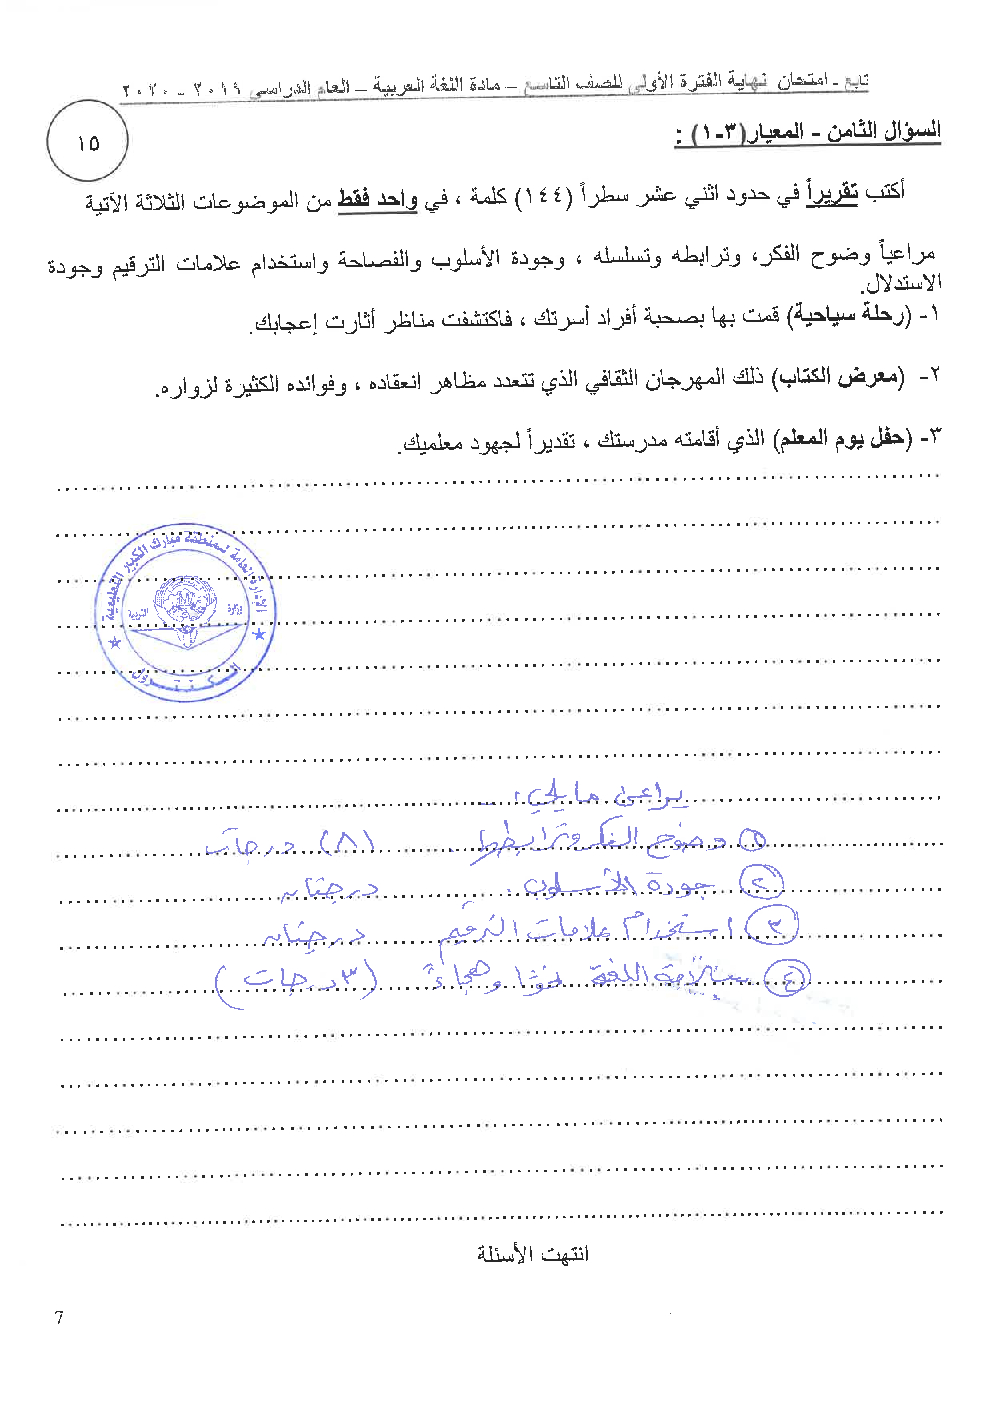 تابع - امتحان نهاية الفترة الأولى للصف التاسع – مادة اللغة العربية – العام الدراسي ٢٠١٩ - ٢٠٢٠
السؤال الثامن - المعيار(٣-١) :
١٥
أكتب تقريراً في حدود اثني عشر سطراً (١٤٤) كلمة ، في واحد فقط من الموضوعات الثلاثة الآتية
مراعياً وضوح الفكر، وترابطه وتسلسله ، وجودة الأسلوب والفصاحة واستخدام علامات الترقيم وجودة
الاستدلال.
١- (رحلة سياحية) قمت بها بصحبة أفراد أسرتك ، فاكتشفت مناظر أثارت إعجابك.
٢- (معرض الكتاب) ذلك المهرجان الثقافي الذي تتعدد مظاهر انعقاده ، وفوائده الكثيرة لزواره.
٣- (حفل يوم المعلم) الذي أقامته مدرستك ، تقديراً لجهود معلميك.
الإدارة العامة لمنطقة مبارك الكبير التعليمية
وزارة التربية
الكنترول
يراعى ما يلي :
١ وضوح الفكر وترابطه (٨) درجات
٢ جودة الأسلوب درجتان
٣ استخدام علامات الترقيم درجتان
٤ سلامة اللغة نحوًا وهجاءً (٣ درجات)
انتهت الأسئلة
7